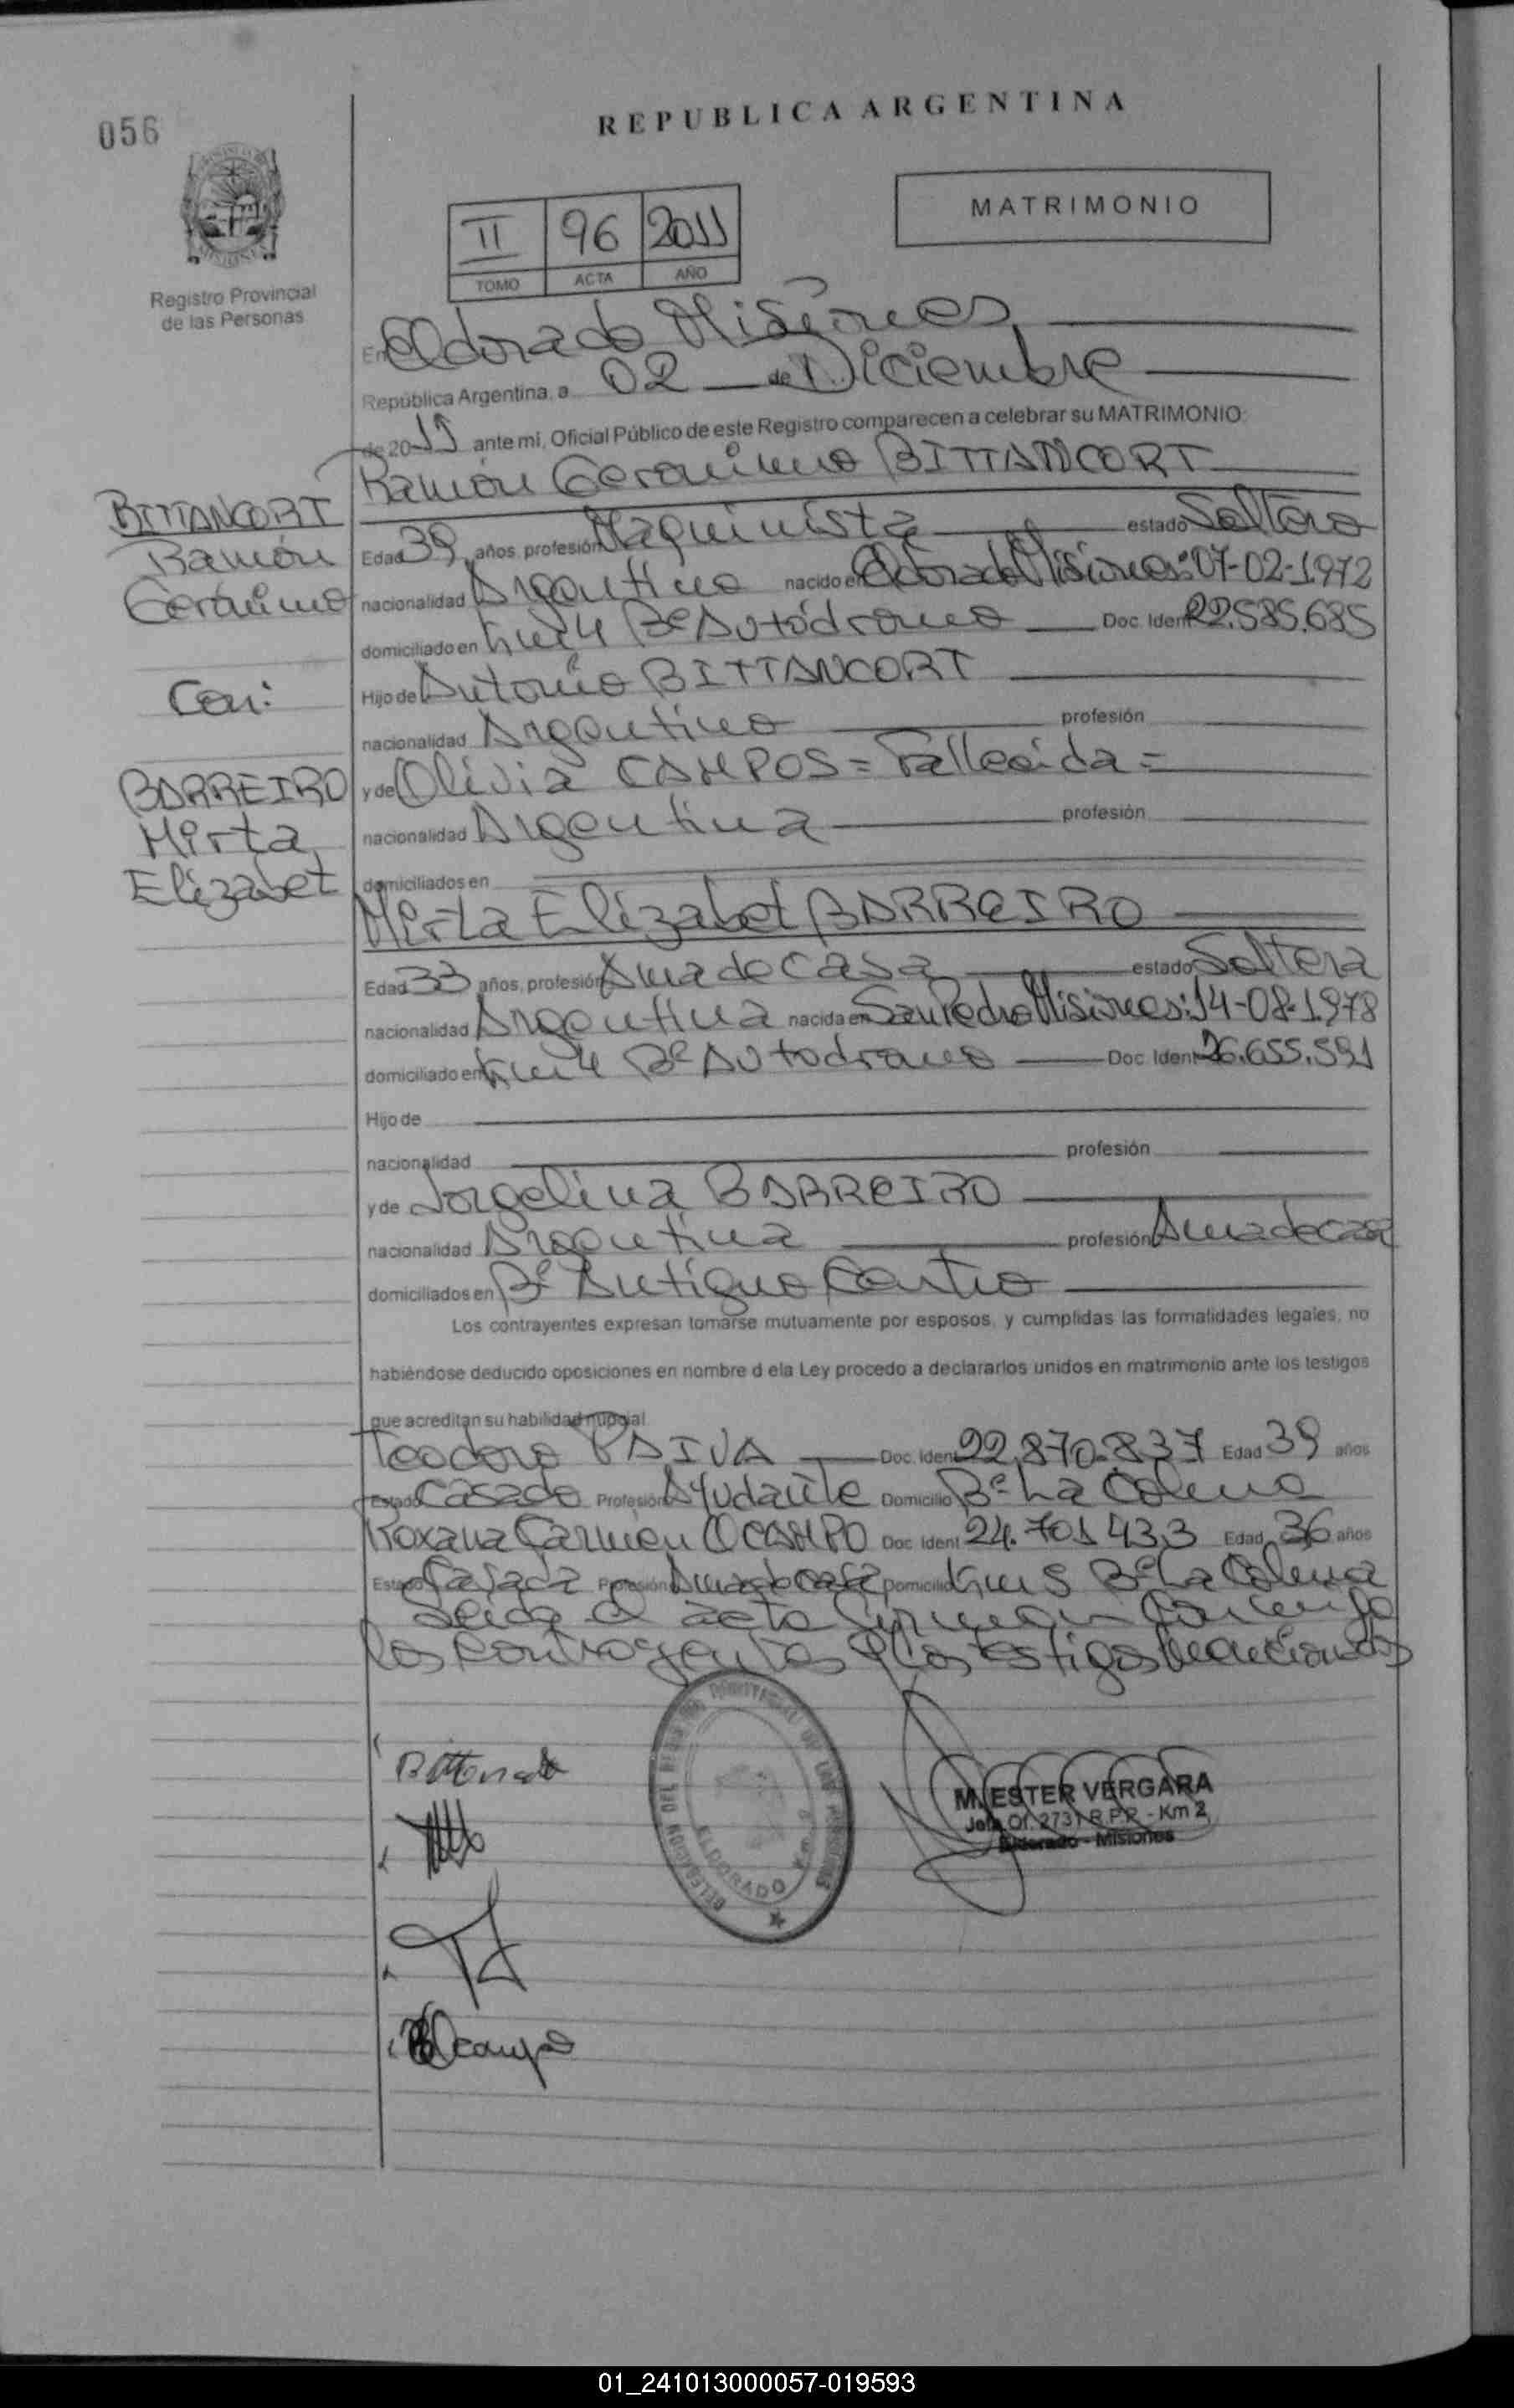 056
REPUBLICA ARGENTINA
MATRIMONIO
II 96 2011
TOMO ACTA AÑO
Registro Provincial
de las Personas
En Eldorado Misiones
República Argentina, a 02 de Diciembre
de 2011 ante mi, Oficial Público de este Registro comparecen a celebrar su MATRIMONIO:
Ramón Gerónimo BITTANCORT
BITTANCORT
Ramón
Gerónimo
Con:
BARREIRO
Mirta
Elizabet
Edad 39 años, profesión Maquinista estado Soltero
nacionalidad Argentino nacido en Eldorado Misiones: 07-02-1972
domiciliado en Km 4 Bº Autódromo Doc. Ident 22.585.685
Hijo de Antonio BITTANCORT
nacionalidad Argentino profesión
y de Olivia CAMPOS = Fallecida =
nacionalidad Argentina profesión
domiciliados en
Mirta Elizabet BARREIRO
Edad 33 años, profesión Ama de casa estado Soltera
nacionalidad Argentina nacida en San Pedro Misiones: 14-08-1978
domiciliado en Km 4 Bº Autodromo Doc. Ident 26.655.591
Hijo de
nacionalidad profesión
y de Jorgelina BARREIRO
nacionalidad Argentina profesión Ama de casa
domiciliados en Bº Antiguo Centro
Los contrayentes expresan tomarse mutuamente por esposos, y cumplidas las formalidades legales, no
habiéndose deducido oposiciones en nombre d ela Ley procedo a declararlos unidos en matrimonio ante los testigos
que acreditan su habilidad nupcial
Teodoro PAIVA Doc. Ident 22.870.837 Edad 39 años
Estado Casado Profesión Ayudante Domicilio Bº La Colena
Roxana Carmen OCAMPO Doc. Ident 24.701.433 Edad 36 años
Estado Casada Profesión Ama de casa Domicilio Km 5 Bº La Colena
Leída el acta firman conmigo
los contrayentes y los testigos mencionados
DELEGACION DEL REGISTRO PROVINCIAL DE LAS PERSONAS
ELDORADO Km 2
M. ESTER VERGARA
Jefa Of. 273 R.P.P. - Km 2
Eldorado - Misiones
Ocampo
01_241013000057-019593